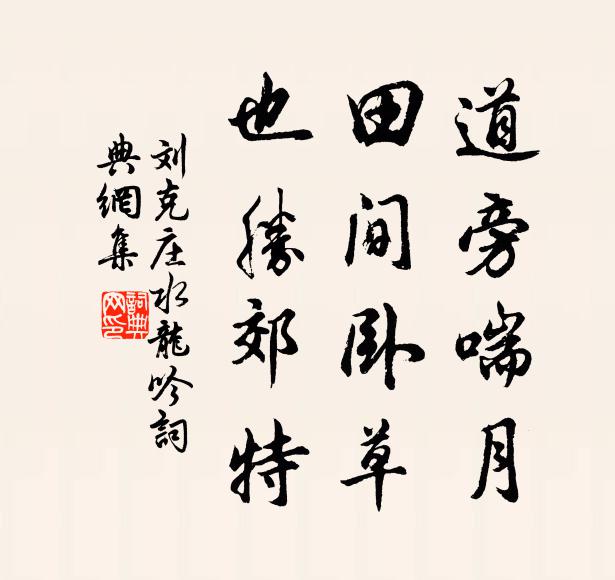 道旁喘月
田間卧草
也勝郊特
刘克庄水龍吟詞
典網集
詞典网印